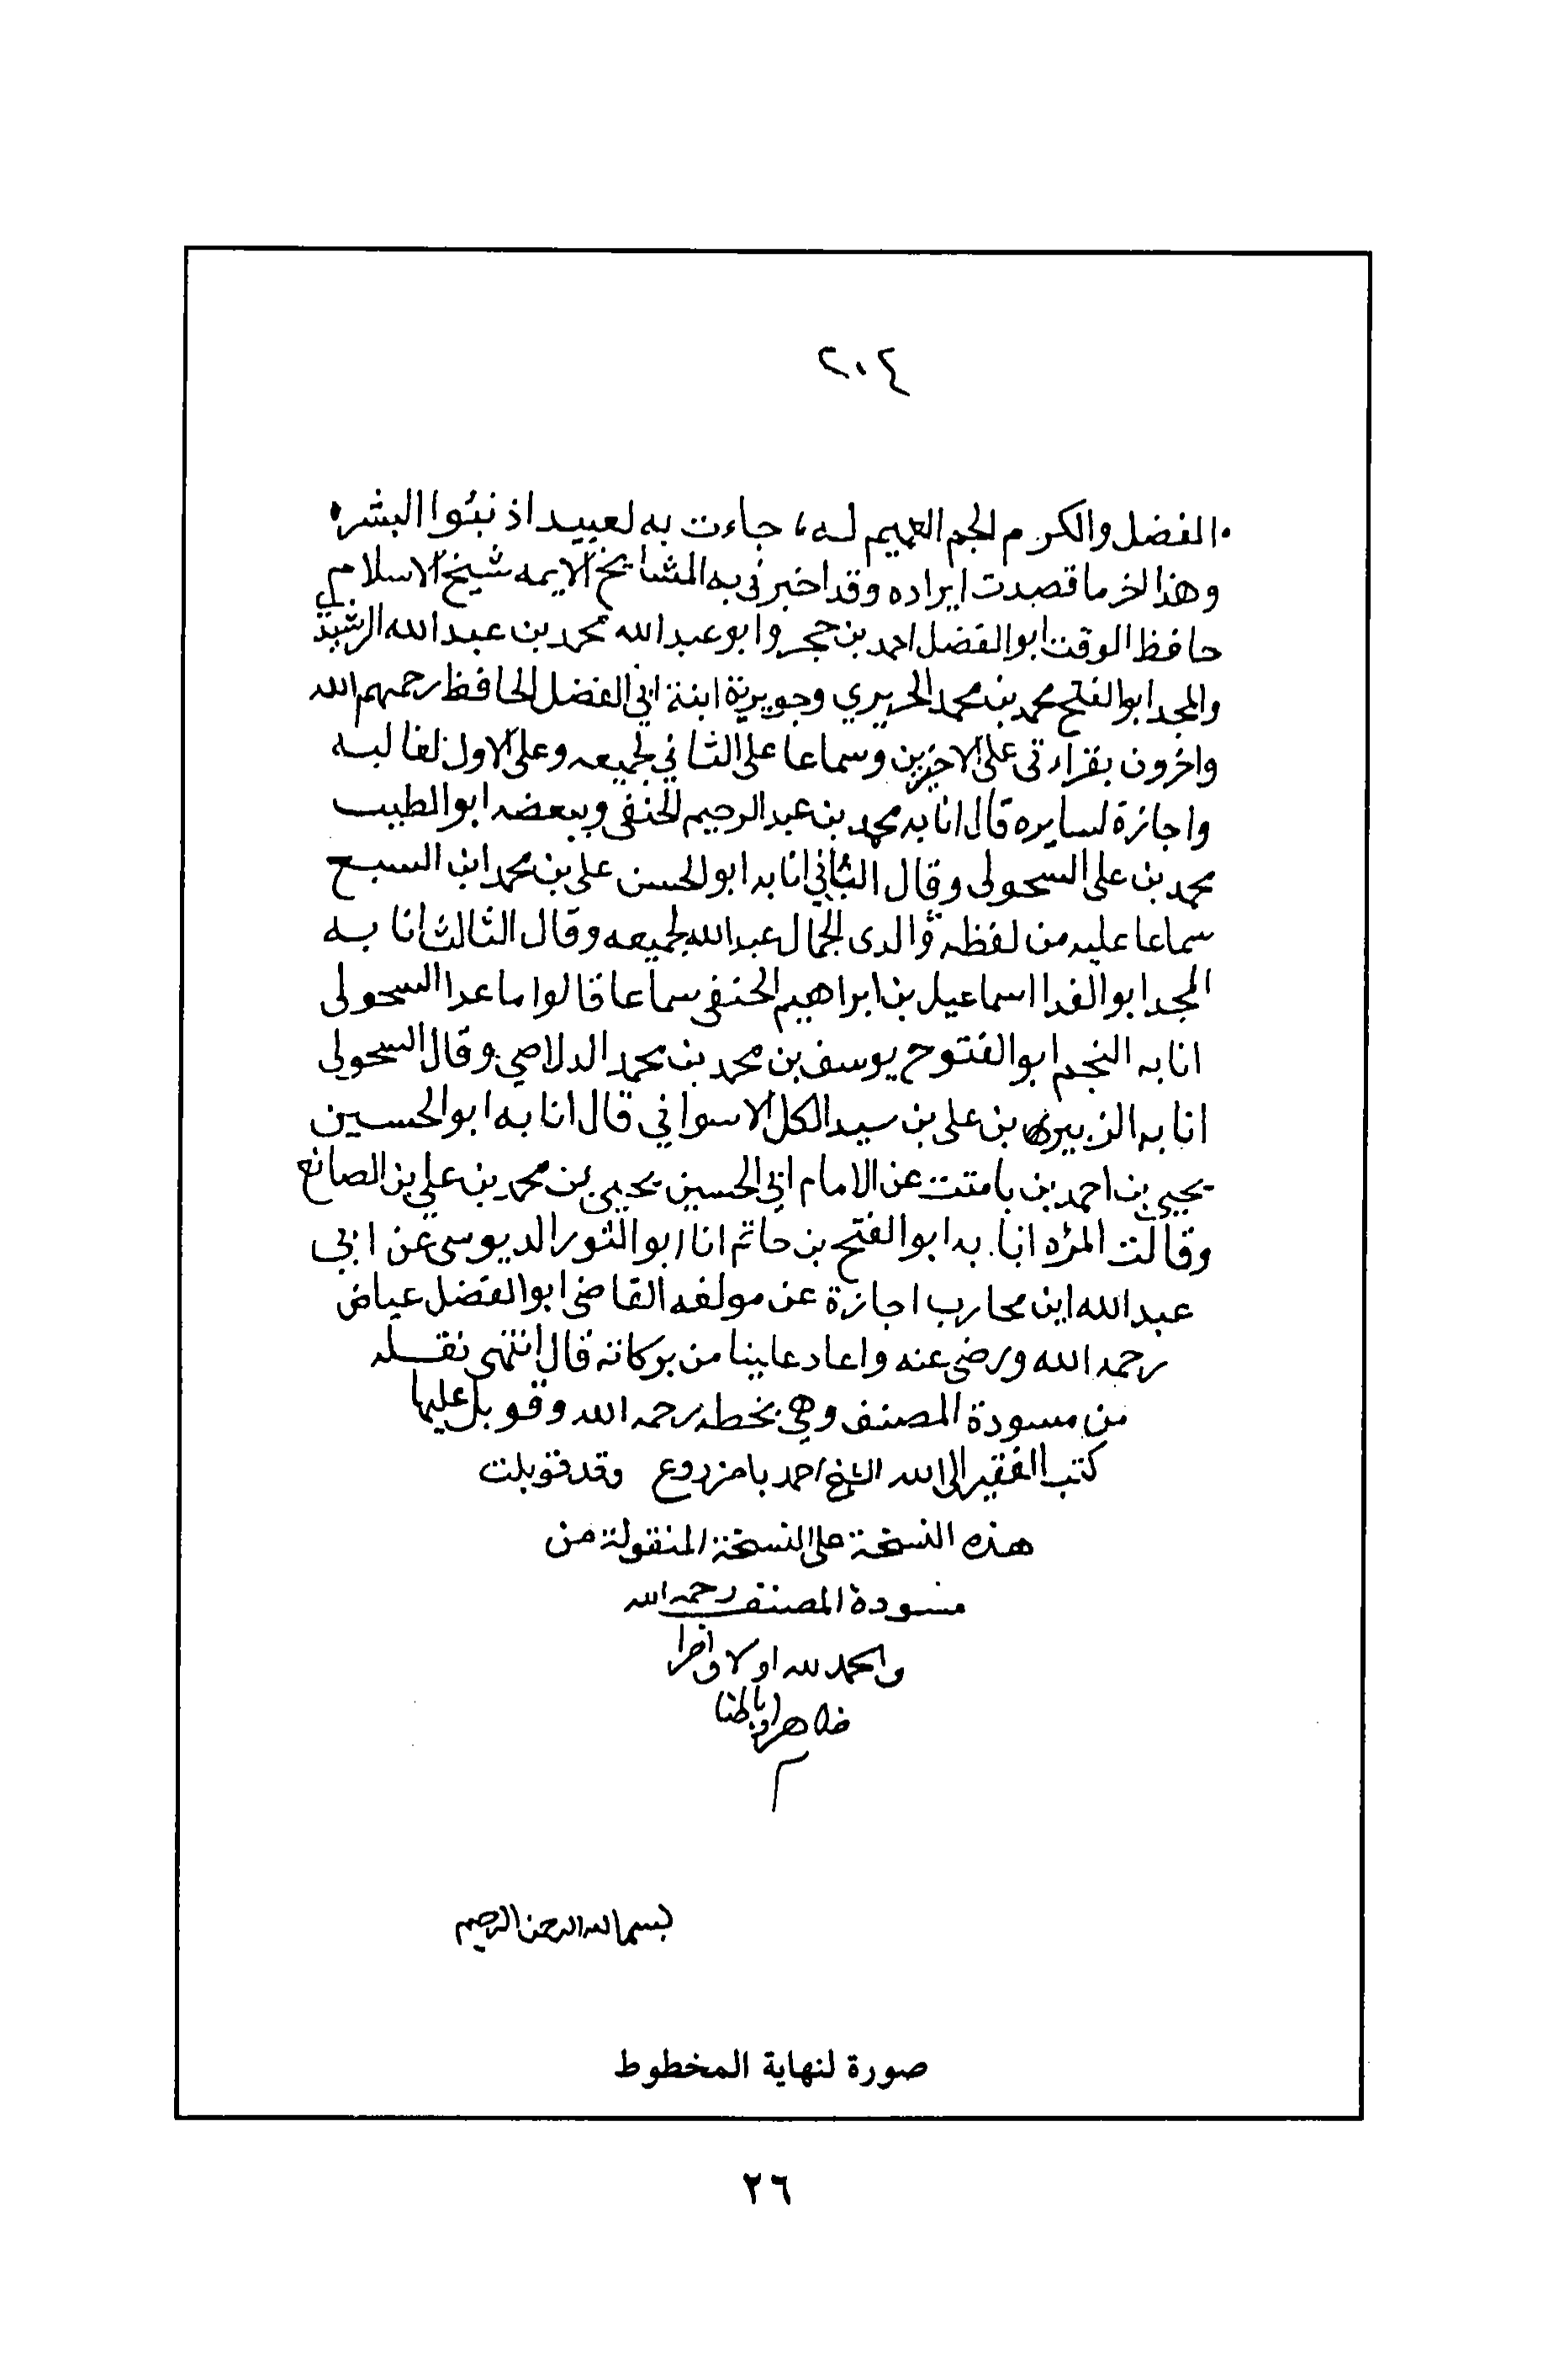 ٢٠٤
الفضل والكرم الجم العميم له، جاءت به لعبيد اذ نبئوا البشره
وهذا اخر ما قصدت ايراده وقد اخبرني به المشايخ الايمه شيخ الاسلام
حافظ الوقت ابو الفضل احمد بن حجر وابو عبد الله محمد بن عبد الله الرشيدي
والمجد ابو الفتح محمد بن محمد الحريري وجويرية ابنة ابي الفضل الحافظ رحمهم الله
واخرون بقراءتي على الاخرين وسماعا على الثاني لجميعه وعلى الاول لغالبه
واجازة لسايره قال انا به محمد بن عبد الرحيم الحنفي وببعضه ابو الطيب
محمد بن على السحولى وقال الثاني انا به ابو الحسن على بن محمد ابن السبع
سماعا عليه من لفظه والدى الجمال عبد الله لجميعه وقال الثالث انا به
المجد ابو الفدا اسماعيل بن ابراهيم الحنفى سماعا قالوا ما عدا السحولى
انا به النجم ابو الفتوح يوسف بن محمد بن محمد الدلاصي وقال السحولي
انا به الزبير بن على بن سيد الكل الاسواني قال انا به ابو الحسين
يحيى بن احمد بن بامتت عن الامام ابي الحسين يحيى بن محمد بن علي بن الصانع
وقالت المرٔه انا به ابو الفتح بن حاتم انا ابو النور الديوسى عن ابي
عبد الله ابن محارب اجازة عن مولفه القاضى ابو الفضل عياض
رحمه الله ورضى عنه واعاد علينا من بركاته قال انتهى نقله
من مسودة المصنف وهي بخطه رحمه الله وقوبل عليها
كتب الفقير الى الله احمد بامزروع وقد قوبلت
هذه النسخة على النسخة المنقولة من
مسودة المصنف رحمه الله
والحمد لله اولا واخرا
ظاهرا وباطنا
م
بسم الله الرحمن الرحيم
صورة لنهاية المخطوط
٢٦